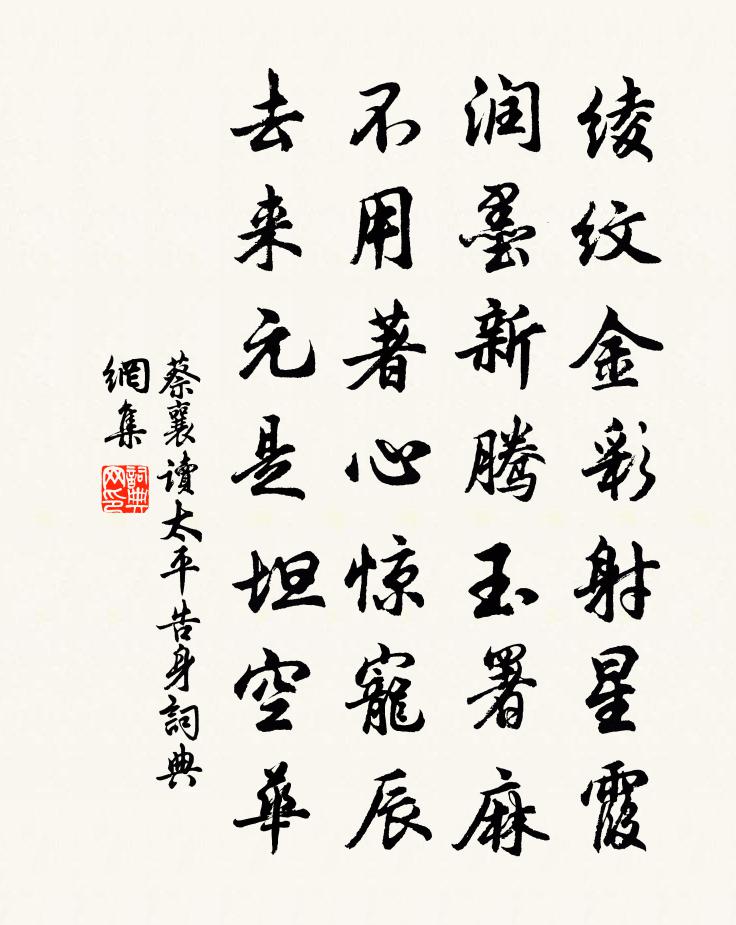 绫纹金彩射星霞
润墨新腾玉署麻
不用著心惊寵辰
去来元是坦空華
蔡襄讀太平告身詞典
網集
詞典网印